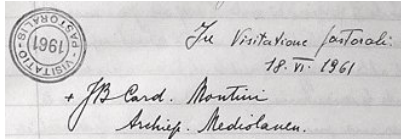 VISITATIO PASTORALIS
1961
In Visitatione pastorali
18. VI. 1961
+ JB Card. Montini
Archiep. Mediolanen.